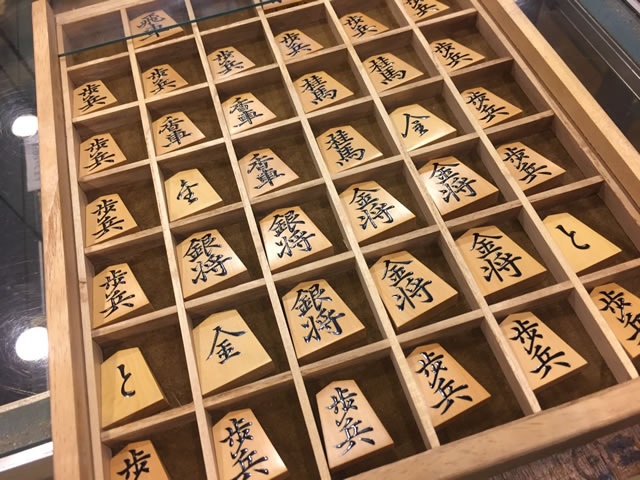 飛車
歩兵 歩兵 歩兵 歩兵 歩兵 歩兵
歩兵 香車 香車 桂馬 桂馬 歩兵
歩兵 全 香車 桂馬 全 歩兵
歩兵 銀将 銀将 金将 金将 歩兵
と 金 銀将 金将 金将 と
歩 歩兵 歩兵 歩兵 歩兵 歩兵